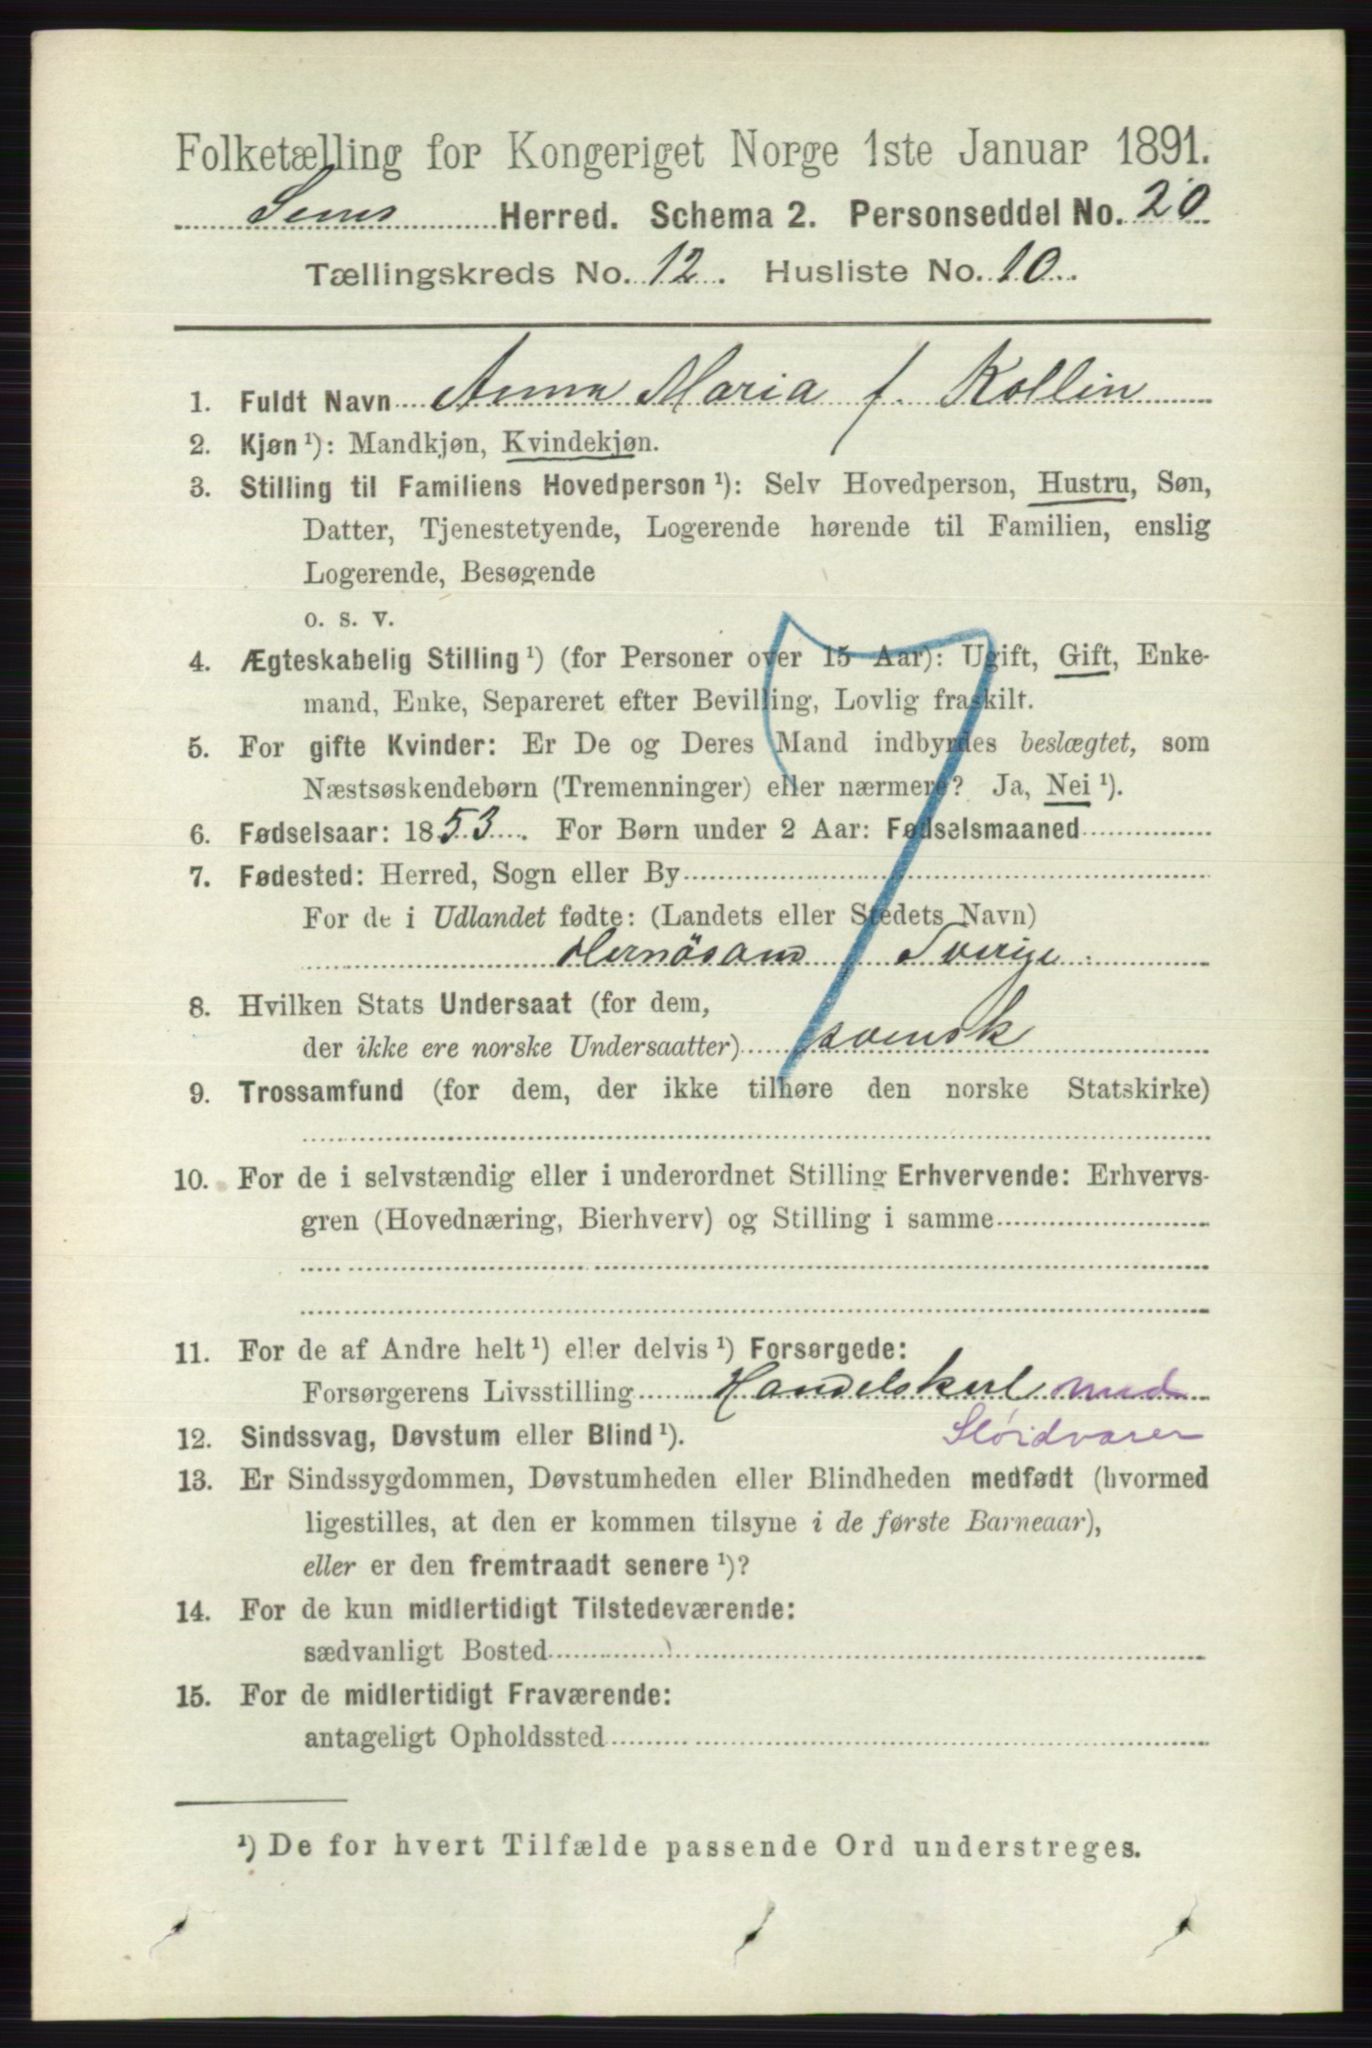 Folketælling for Kongeriget Norge 1ste Januar 1891.
Sems Herred. Schema 2. Personseddel No. 20
Tællingskreds No. 12. Husliste No. 10.
1. Fuldt Navn Anna Maria f. Kollin
2. Kjøn ¹): Mandkjøn, Kvindekjøn.
3. Stilling til Familiens Hovedperson ¹): Selv Hovedperson, Hustru, Søn,
Datter, Tjenestetyende, Logerende hørende til Familien, enslig
Logerende, Besøgende
o. s. v.
4. Ægteskabelig Stilling ¹) (for Personer over 15 Aar): Ugift, Gift, Enke-
mand, Enke, Separeret efter Bevilling, Lovlig fraskilt.
5. For gifte Kvinder: Er De og Deres Mand indbyrdes beslægtet, som
Næstsøskendebørn (Tremenninger) eller nærmere? Ja, Nei ¹).
6. Fødselsaar: 1853. For Børn under 2 Aar: Fødselsmaaned
7. Fødested: Herred, Sogn eller By
For de i Udlandet fødte: (Landets eller Stedets Navn)
Hernösand Sverige
8. Hvilken Stats Undersaat (for dem,
der ikke ere norske Undersaatter) svensk
9. Trossamfund (for dem, der ikke tilhøre den norske Statskirke)
10. For de i selvstændig eller i underordnet Stilling Erhvervende: Erhvervs-
gren (Hovednæring, Bierhverv) og Stilling i samme
11. For de af Andre helt ¹) eller delvis ¹) Forsørgede:
Forsørgerens Livsstilling Handelskarl med
Sløidvarer
12. Sindssvag, Døvstum eller Blind ¹).
13. Er Sindssygdommen, Døvstumheden eller Blindheden medfødt (hvormed
ligestilles, at den er kommen tilsyne i de første Barneaar),
eller er den fremtraadt senere ¹)?
14. For de kun midlertidigt Tilstedeværende:
sædvanligt Bosted
15. For de midlertidigt Fraværende:
antageligt Opholdssted
¹) De for hvert Tilfælde passende Ord understreges.